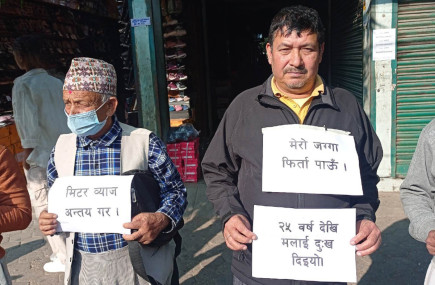 मिटर व्याज
अन्तय गर ।
मेरो जग्गा
फिर्ता पाऊँ ।
२५ बर्ष देखि
मलाई दुःख
दिइयो।